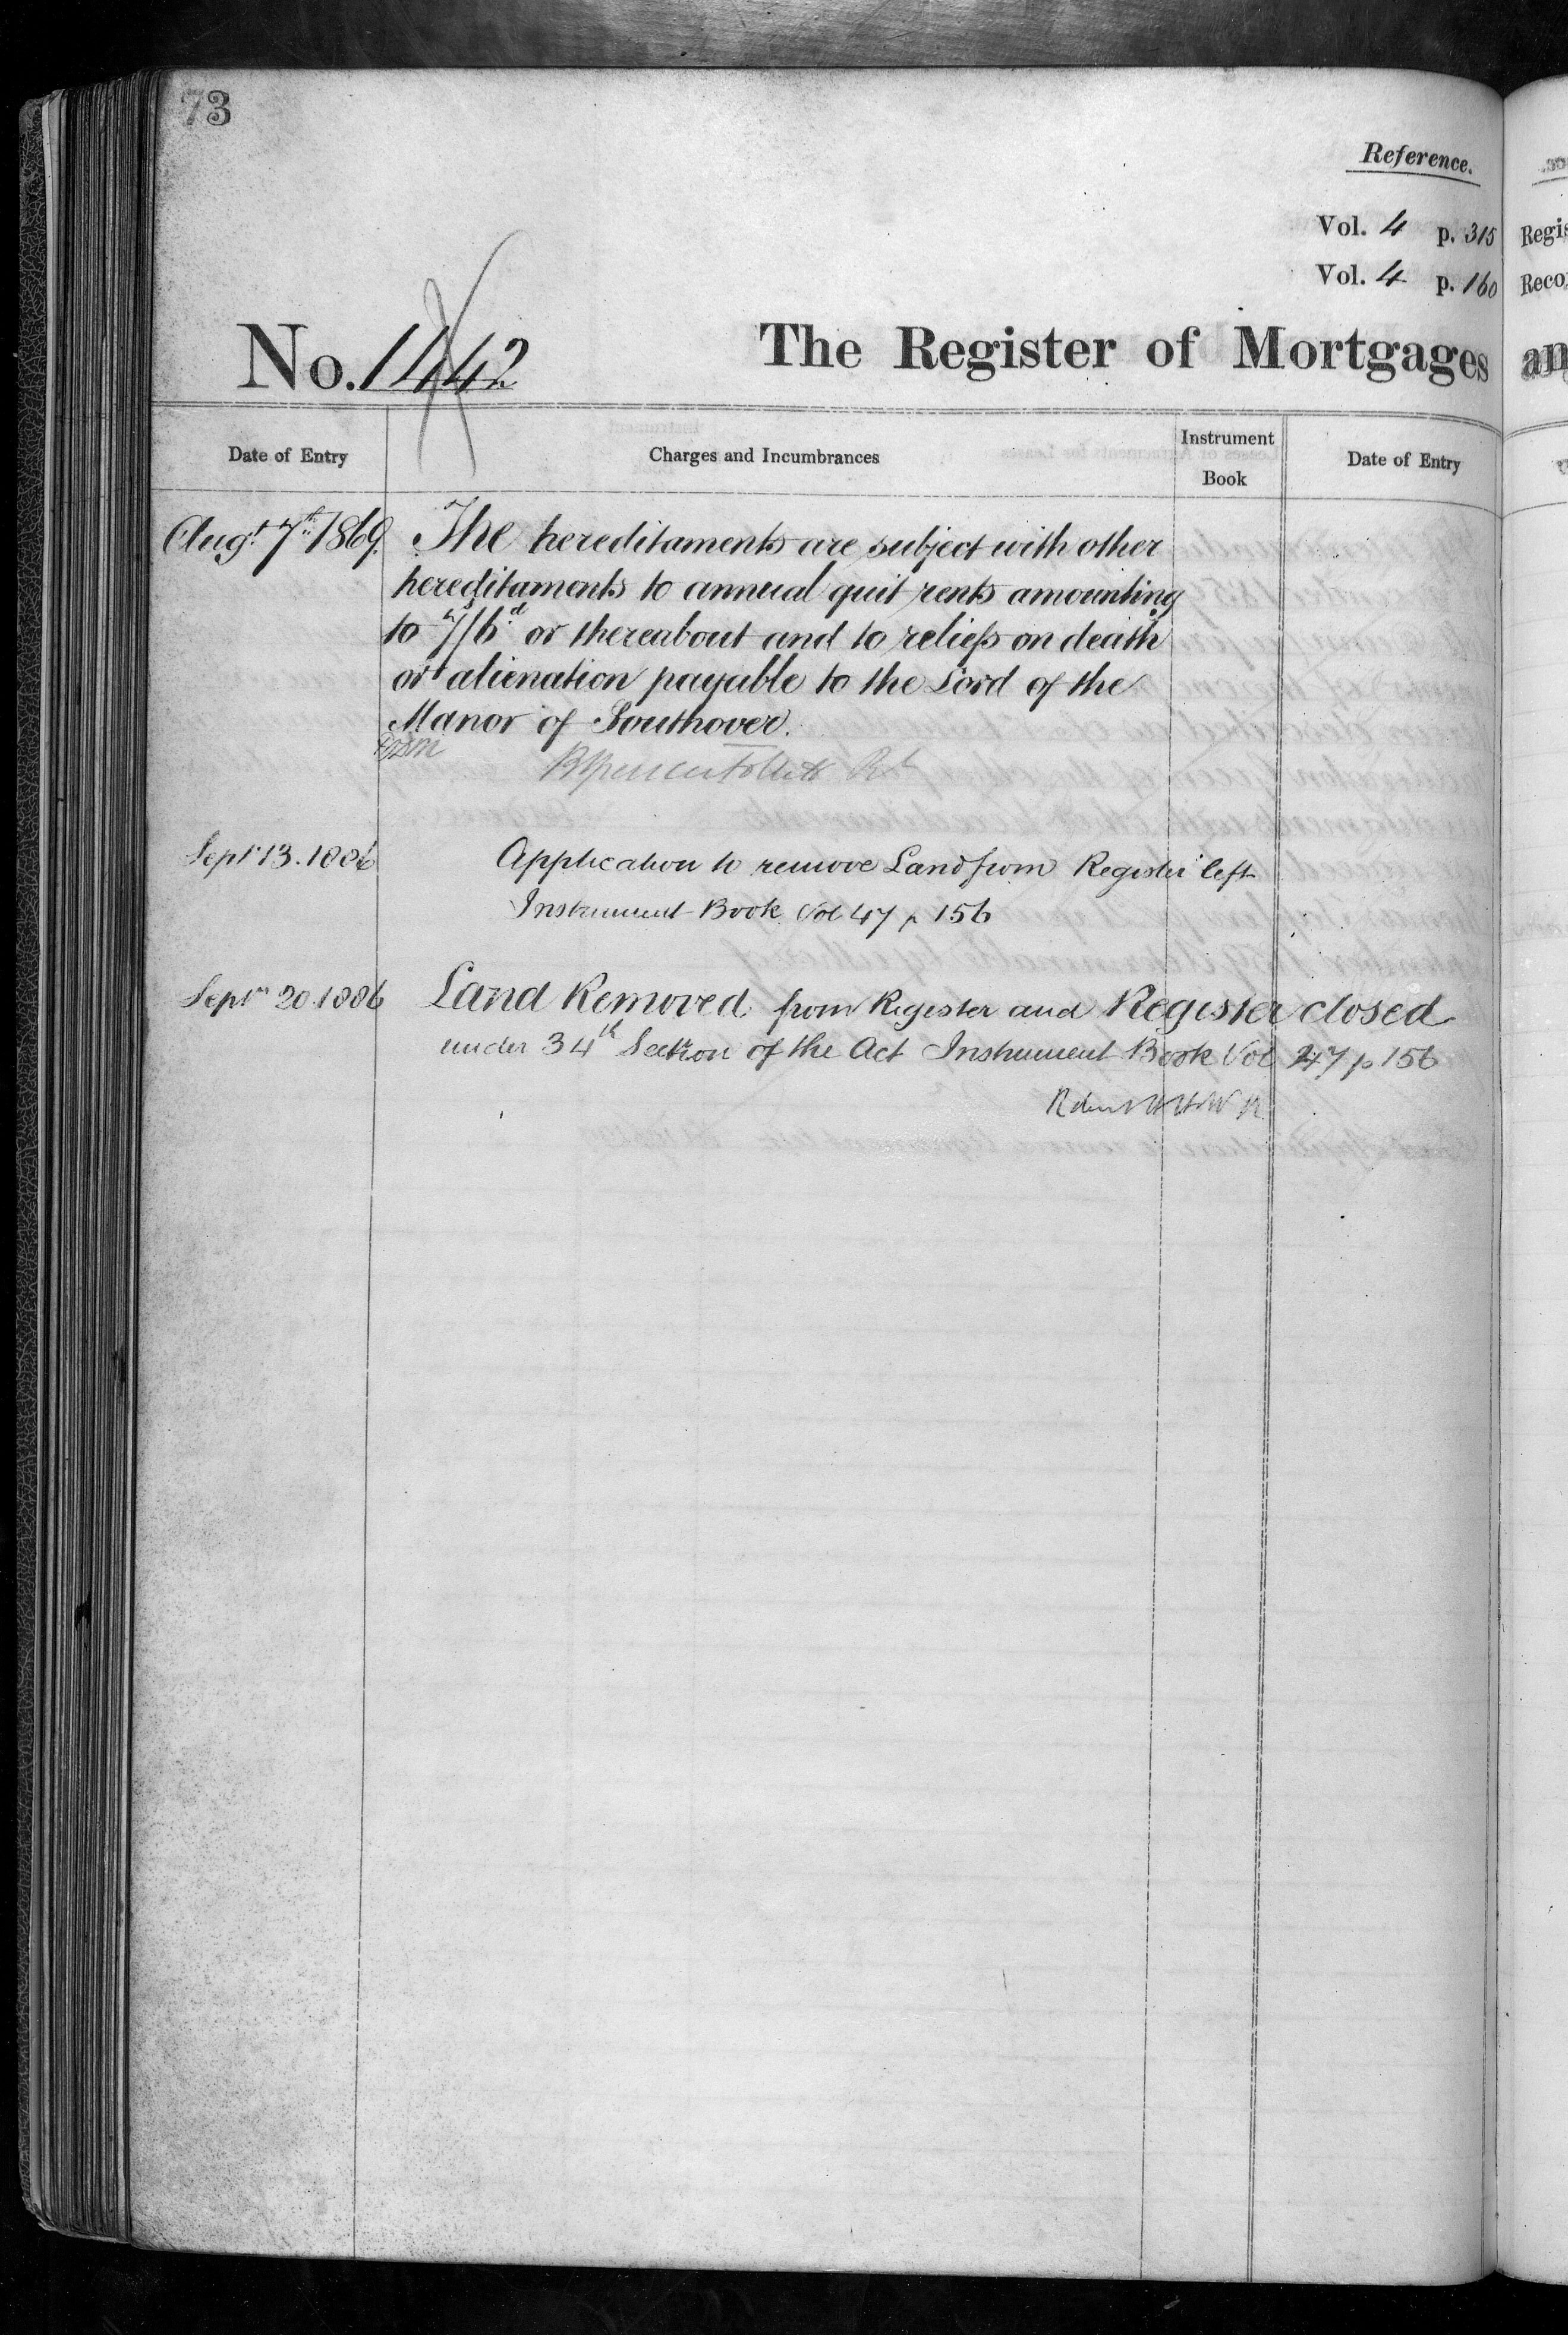 73
Reference.
Vol. 4 p. 315
Vol. 4 p. 160
No. 1442 The Register of Mortgages
Date of Entry Charges and Incumbrances Instrument Book Date of Entry
Augt. 7th. 1869. The hereditaments are subject with other
hereditaments to annual quit rents amounting
to 7s/6d. or thereabout and to reliefs on death
or alienation payable to the Lord of the
Manor of Southover.
Sept 13. 1886 Application to remove Land from Register left
Instrument Book Vol 47 p 156
Septr 20. 1886 Land Removed from Register and Register closed
under 34th Section of the Act Instrument Book Vol 47 p 156